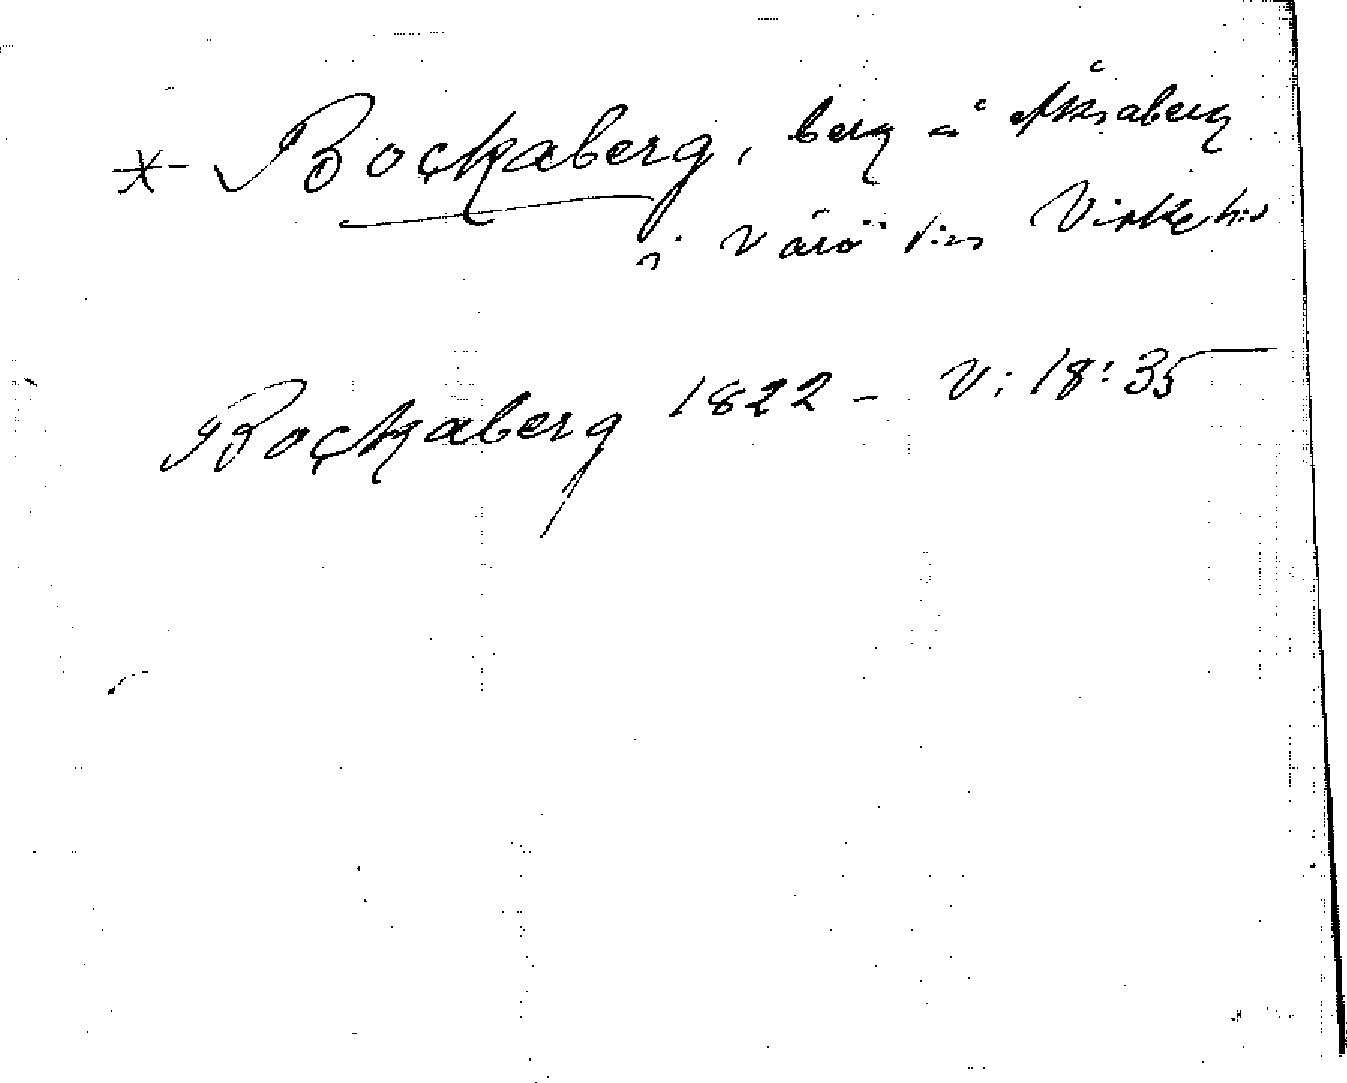 * Bockaberg, berg å Åkraberg
i Värö sn Viske hd
Bockaberg 1822 - V: 18:35